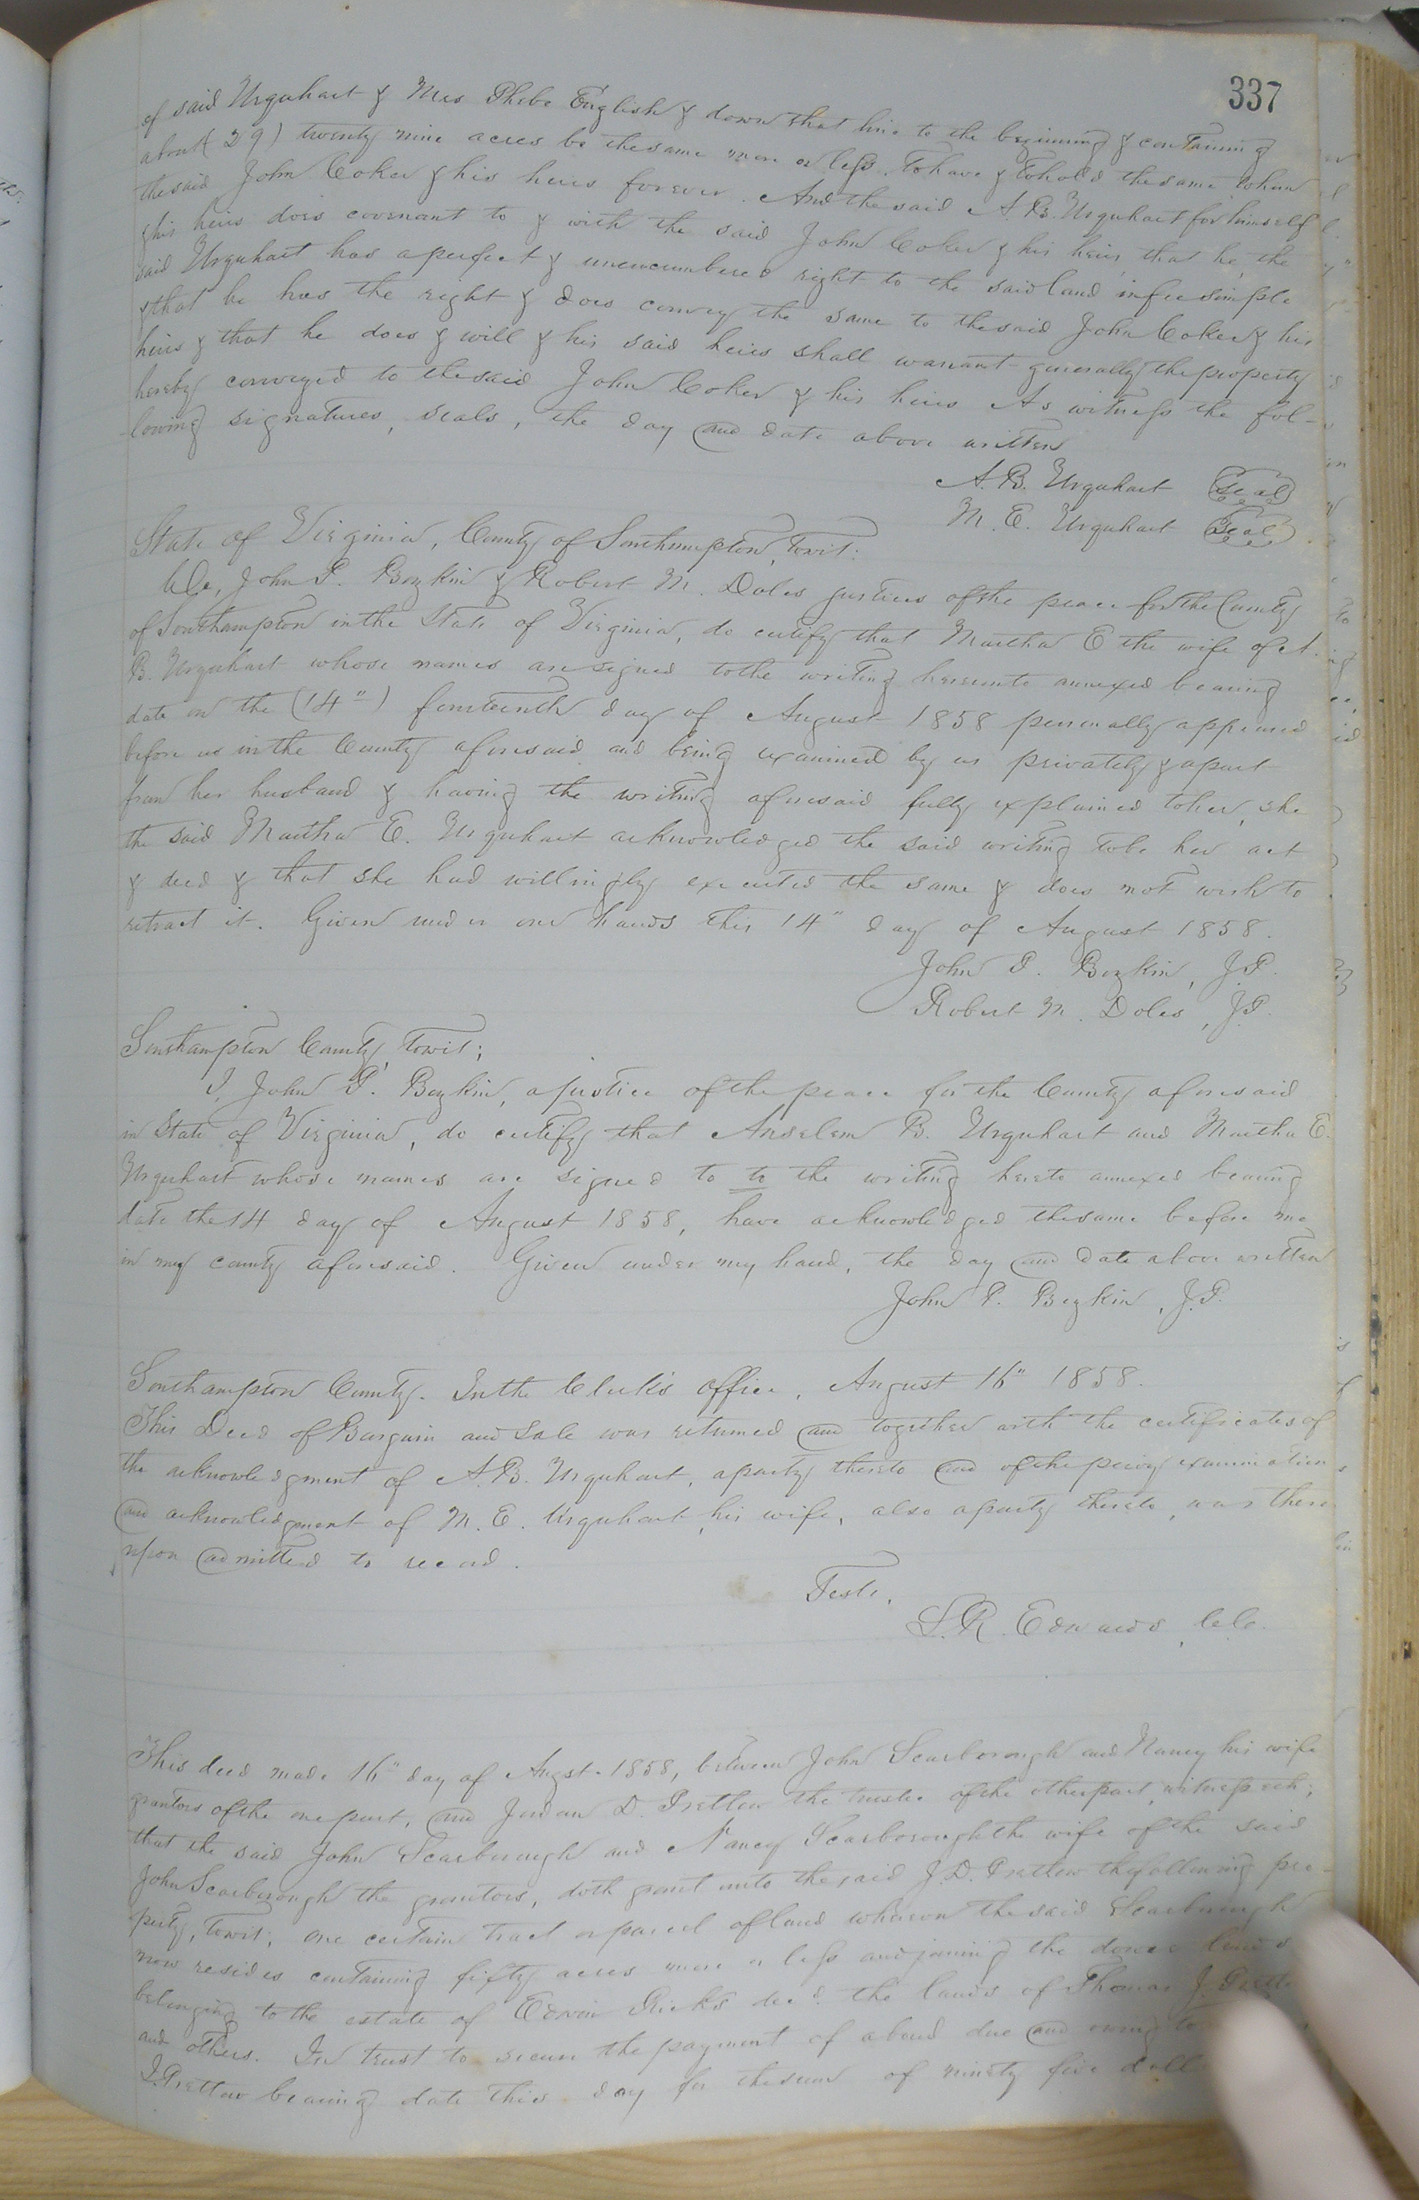 337
of said Urquhart & Mrs Phebe English & down that line to the beginning & containing
about (29) twenty nine acres be the same more or less. To have & to hold the same to him
the said John Coker & his heirs forever. And the said A. B. Urquhart for himself
& his heirs does covenant to & with the said John Coker & his heirs, that he, the
said Urquhart has a perfect & unencumbered right to the said land in fee simple
& that he has the right & does convey the same to the said John Coker & his
heirs & that he does & will & his said heirs shall warrant generally the property
hereby conveyed to the said John Coker & his heirs As witness the fol-
lowing signatures, seals, the day and date above written
A. B. Urquhart (Seal)
M. E. Urquhart (Seal)
State of Virginia, County of Southampton, towit:
We, John P. Boykin & Robert M. Doles justices of the peace for the County
of Southampton in the State of Virginia, do certify that Martha E the wife of A.
B. Urquhart whose names are signed to the writing hereunto annexed bearing
date on the (14") fourteenth day of August 1858 personally appeared
before us in the County aforesaid and being examined by us privately & apart
from her husband & having the writing aforesaid fully explained to her, she
the said Martha E. Urquhart acknowledged the said writing to be her act
& deed & that she had willingly executed the same & does not wish to
retract it. Given under our hands this 14" day of August 1858.
John P. Boykin, J.P.
Robert M. Doles, J.P.
Southampton County, towit;
I, John P. Boykin, a justice of the peace for the County aforesaid
in State of Virginia, do certify that Anselem B. Urquhart and Martha E.
Urquhart whose names are signed to to the writing hereto annexed bearing
date the 14 day of August 1858, have acknowledged the same before me
in my county aforesaid. Given under my hand, the day and date above written
John P. Boykin, J.P.
Southampton County. In the Clerk's office, August 16" 1858.
This Deed of Bargain and Sale was returned and together with the certificates of
the acknowledgment of A. B. Urquhart, a party thereto and of the privy examination
and acknowledgment of M. E. Urquhart, his wife, also a party thereto, was there
upon admitted to record.
Teste,
L. R. Edwards, C.C.
This deed made 16" day of Augst. 1858, between John Scarborough and Nancy his wife
grantors of the one part, and Jordan D. Pretlow the trustee of the other part, witnesseth;
that the said John Scarborough and Nancy Scarborough the wife of the said
John Scarborough the grantors, doth grant unto the said J. D. Pretlow the following pro-
perty, towit; one certain tract or parcel of land whereon the said Scarborough
now resides containing fifty acres more or less and joining the dower lands
belonging to the estate of Edwin Ricks decd. the lands of Thomas J. Pretlow
and others. In trust to secure the payment of a bond due and owing to
J. Pretlow bearing date this day for the sum of ninety five doll